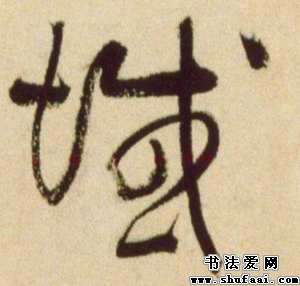 域
书法爱网
www.shufaai.com